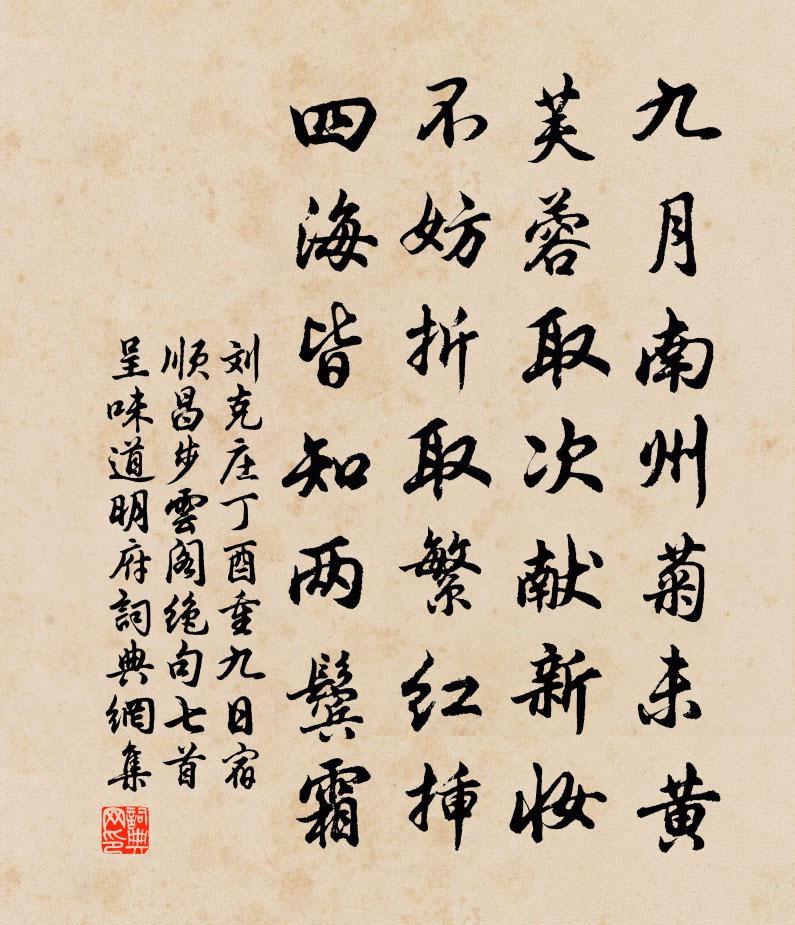 九月南州菊未黄
芙蓉取次献新妆
不妨折取繁红插
四海皆知两鬓霜
刘克庄丁酉重九日宿
顺昌步雲阁绝句七首
呈味道明府詞典網集
詞典网印